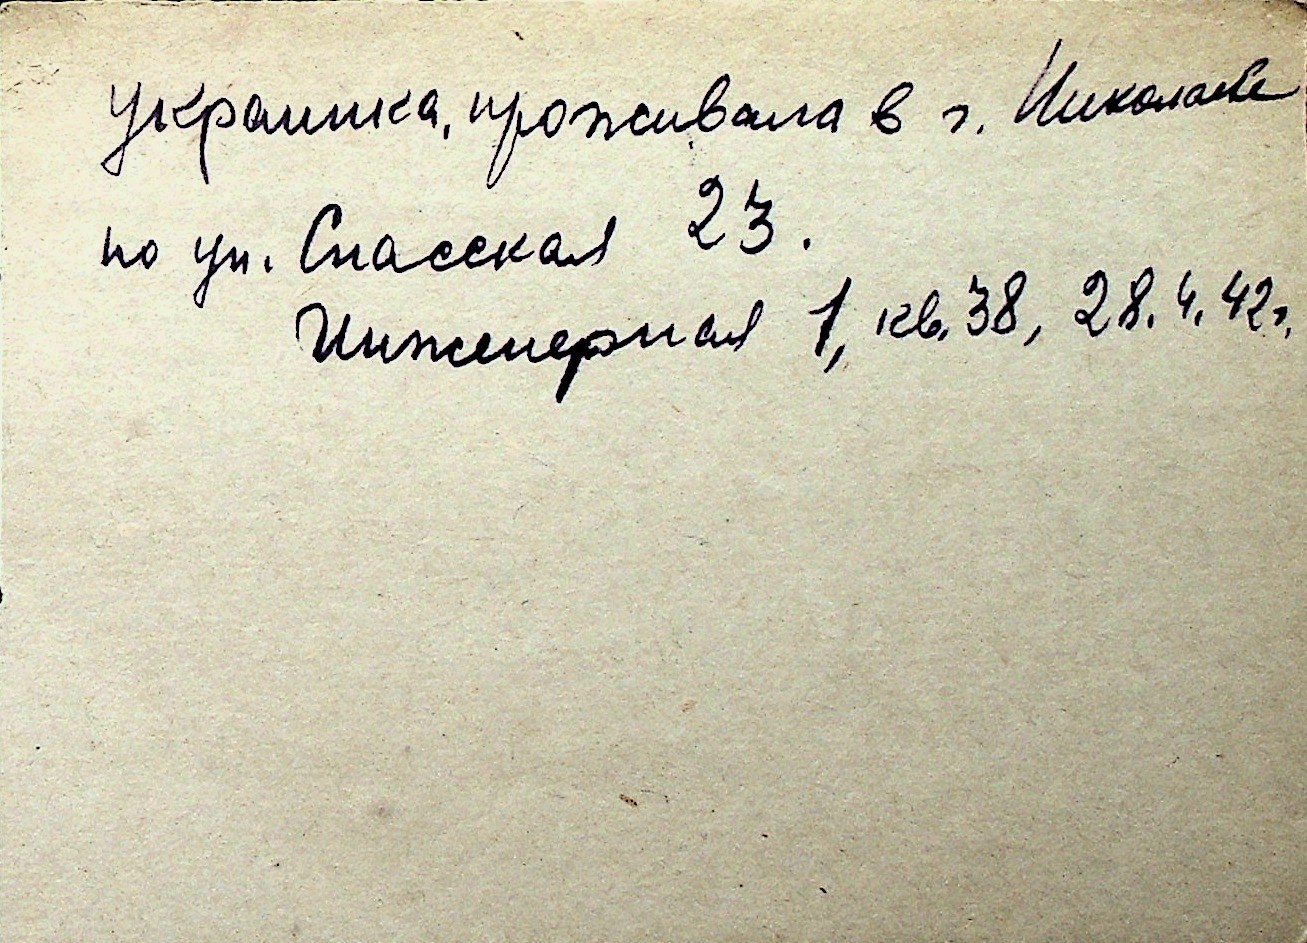 украинка, проживала в г. Николаеве
по ул. Спасская 23.
Инженерная 1, кв. 38, 28.4.42г.